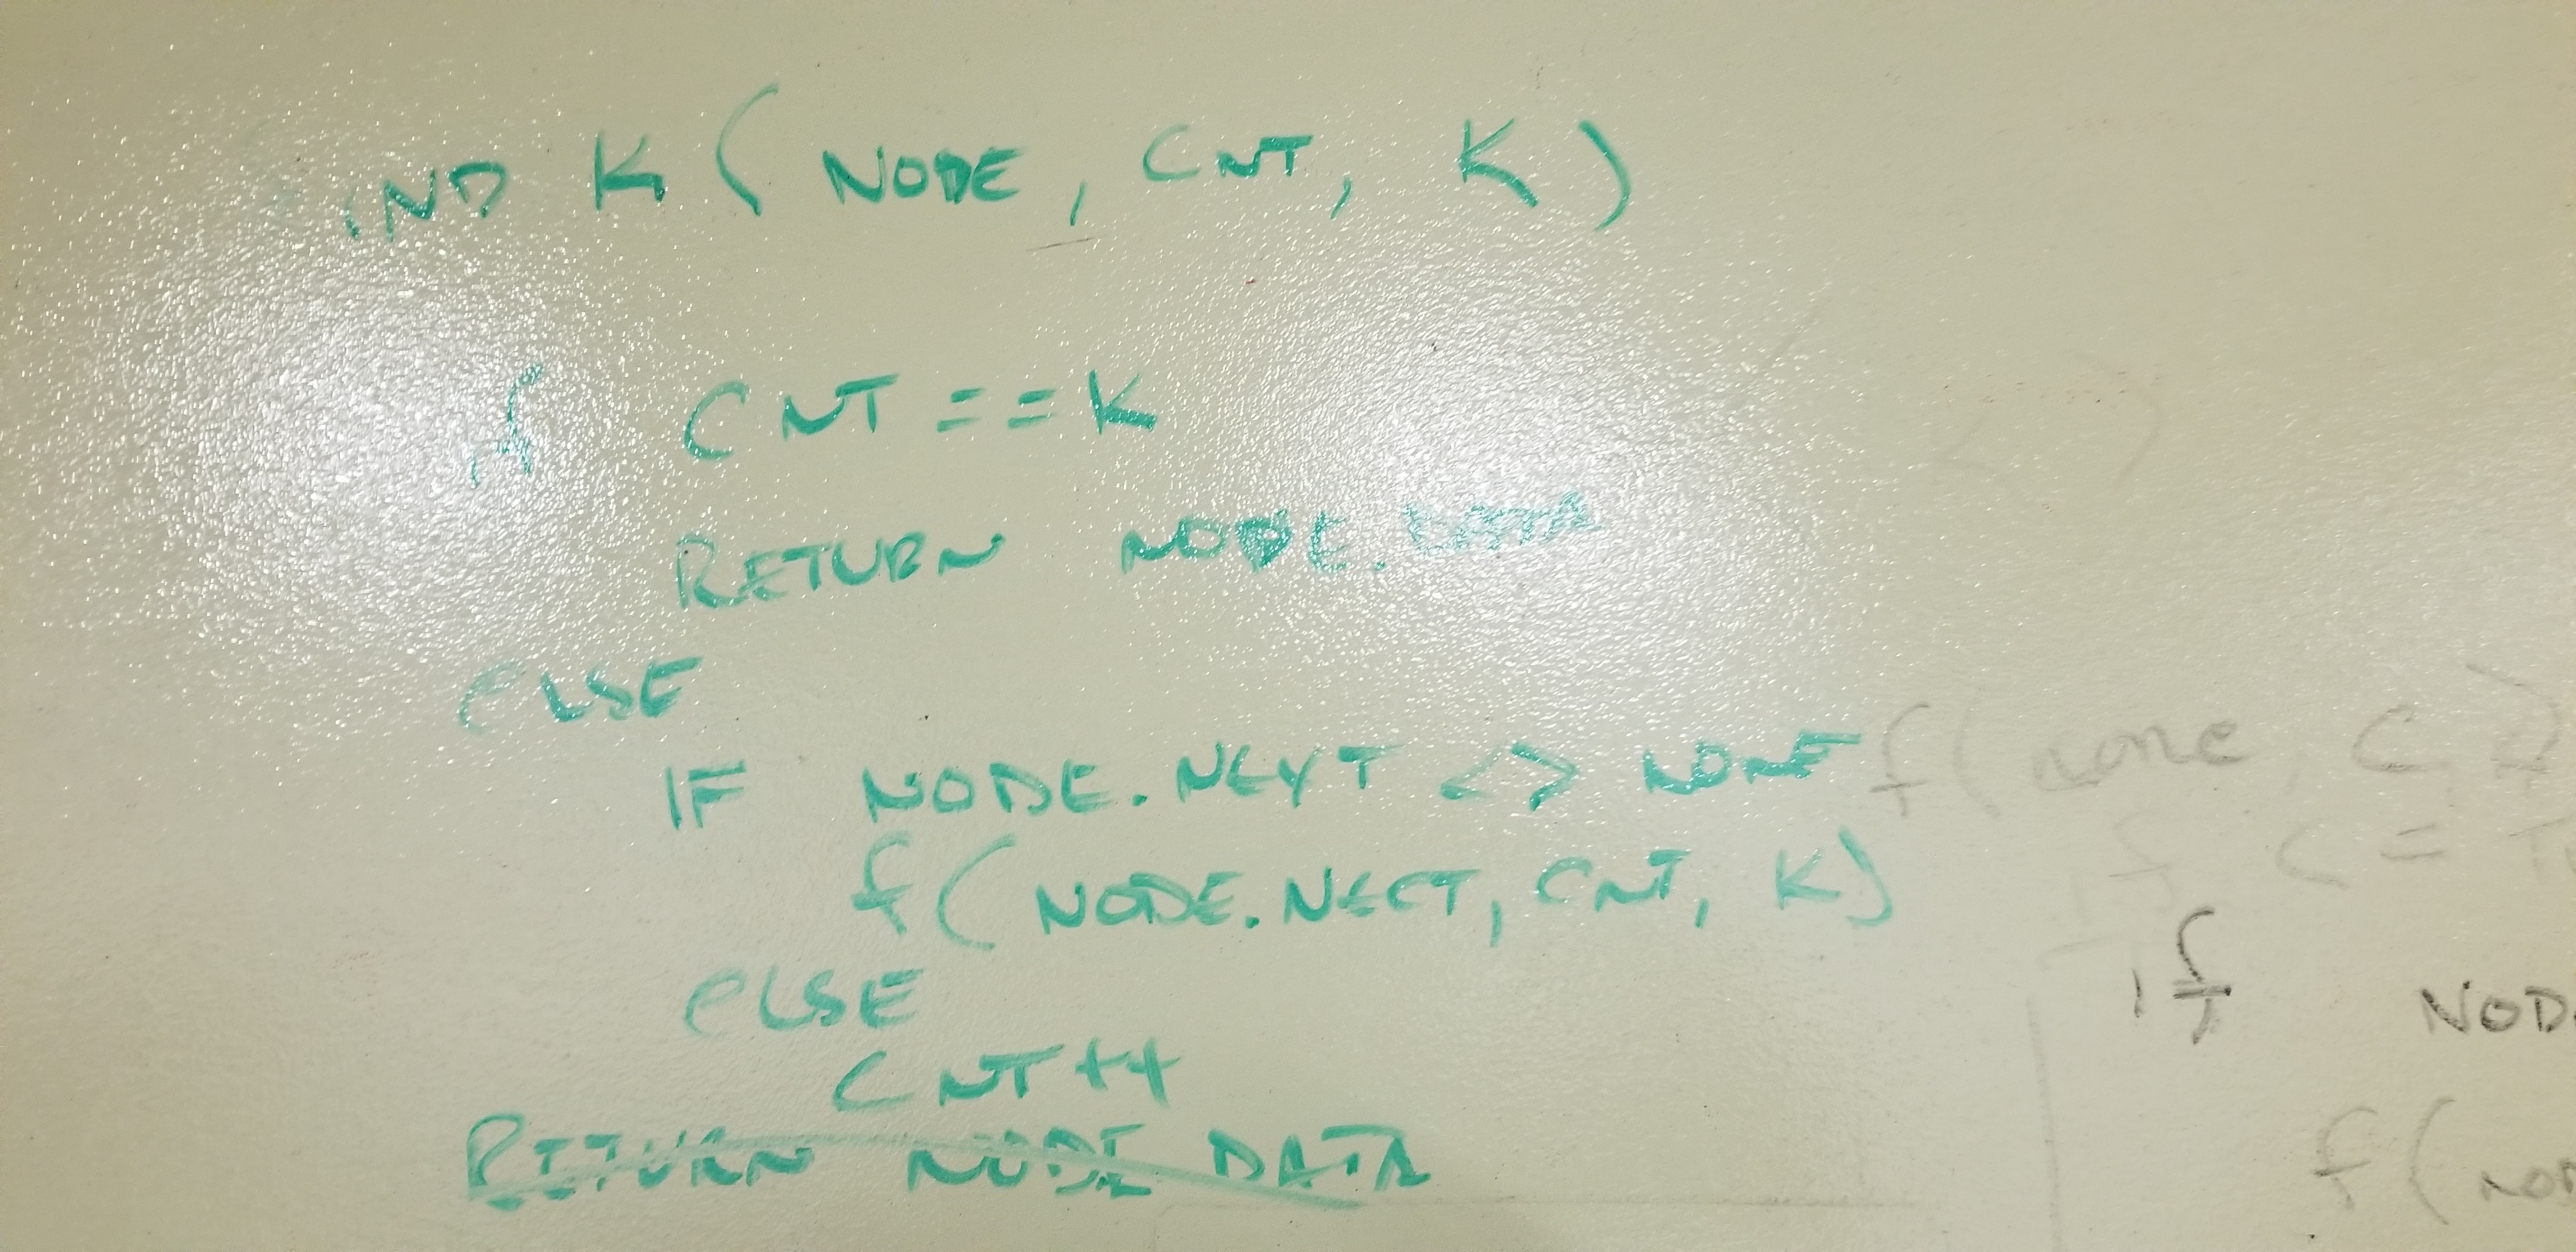 IND K ( NODE , CNT, K )
if CNT == K
RETURN NODE. DATA
ELSE
IF NODE. NEXT <> NONE
f ( NODE. NEXT, CNT, K )
ELSE
CNT ++
RETURN NODE DATA
f ( none, C,
if C =
if NOD
f ( NOD